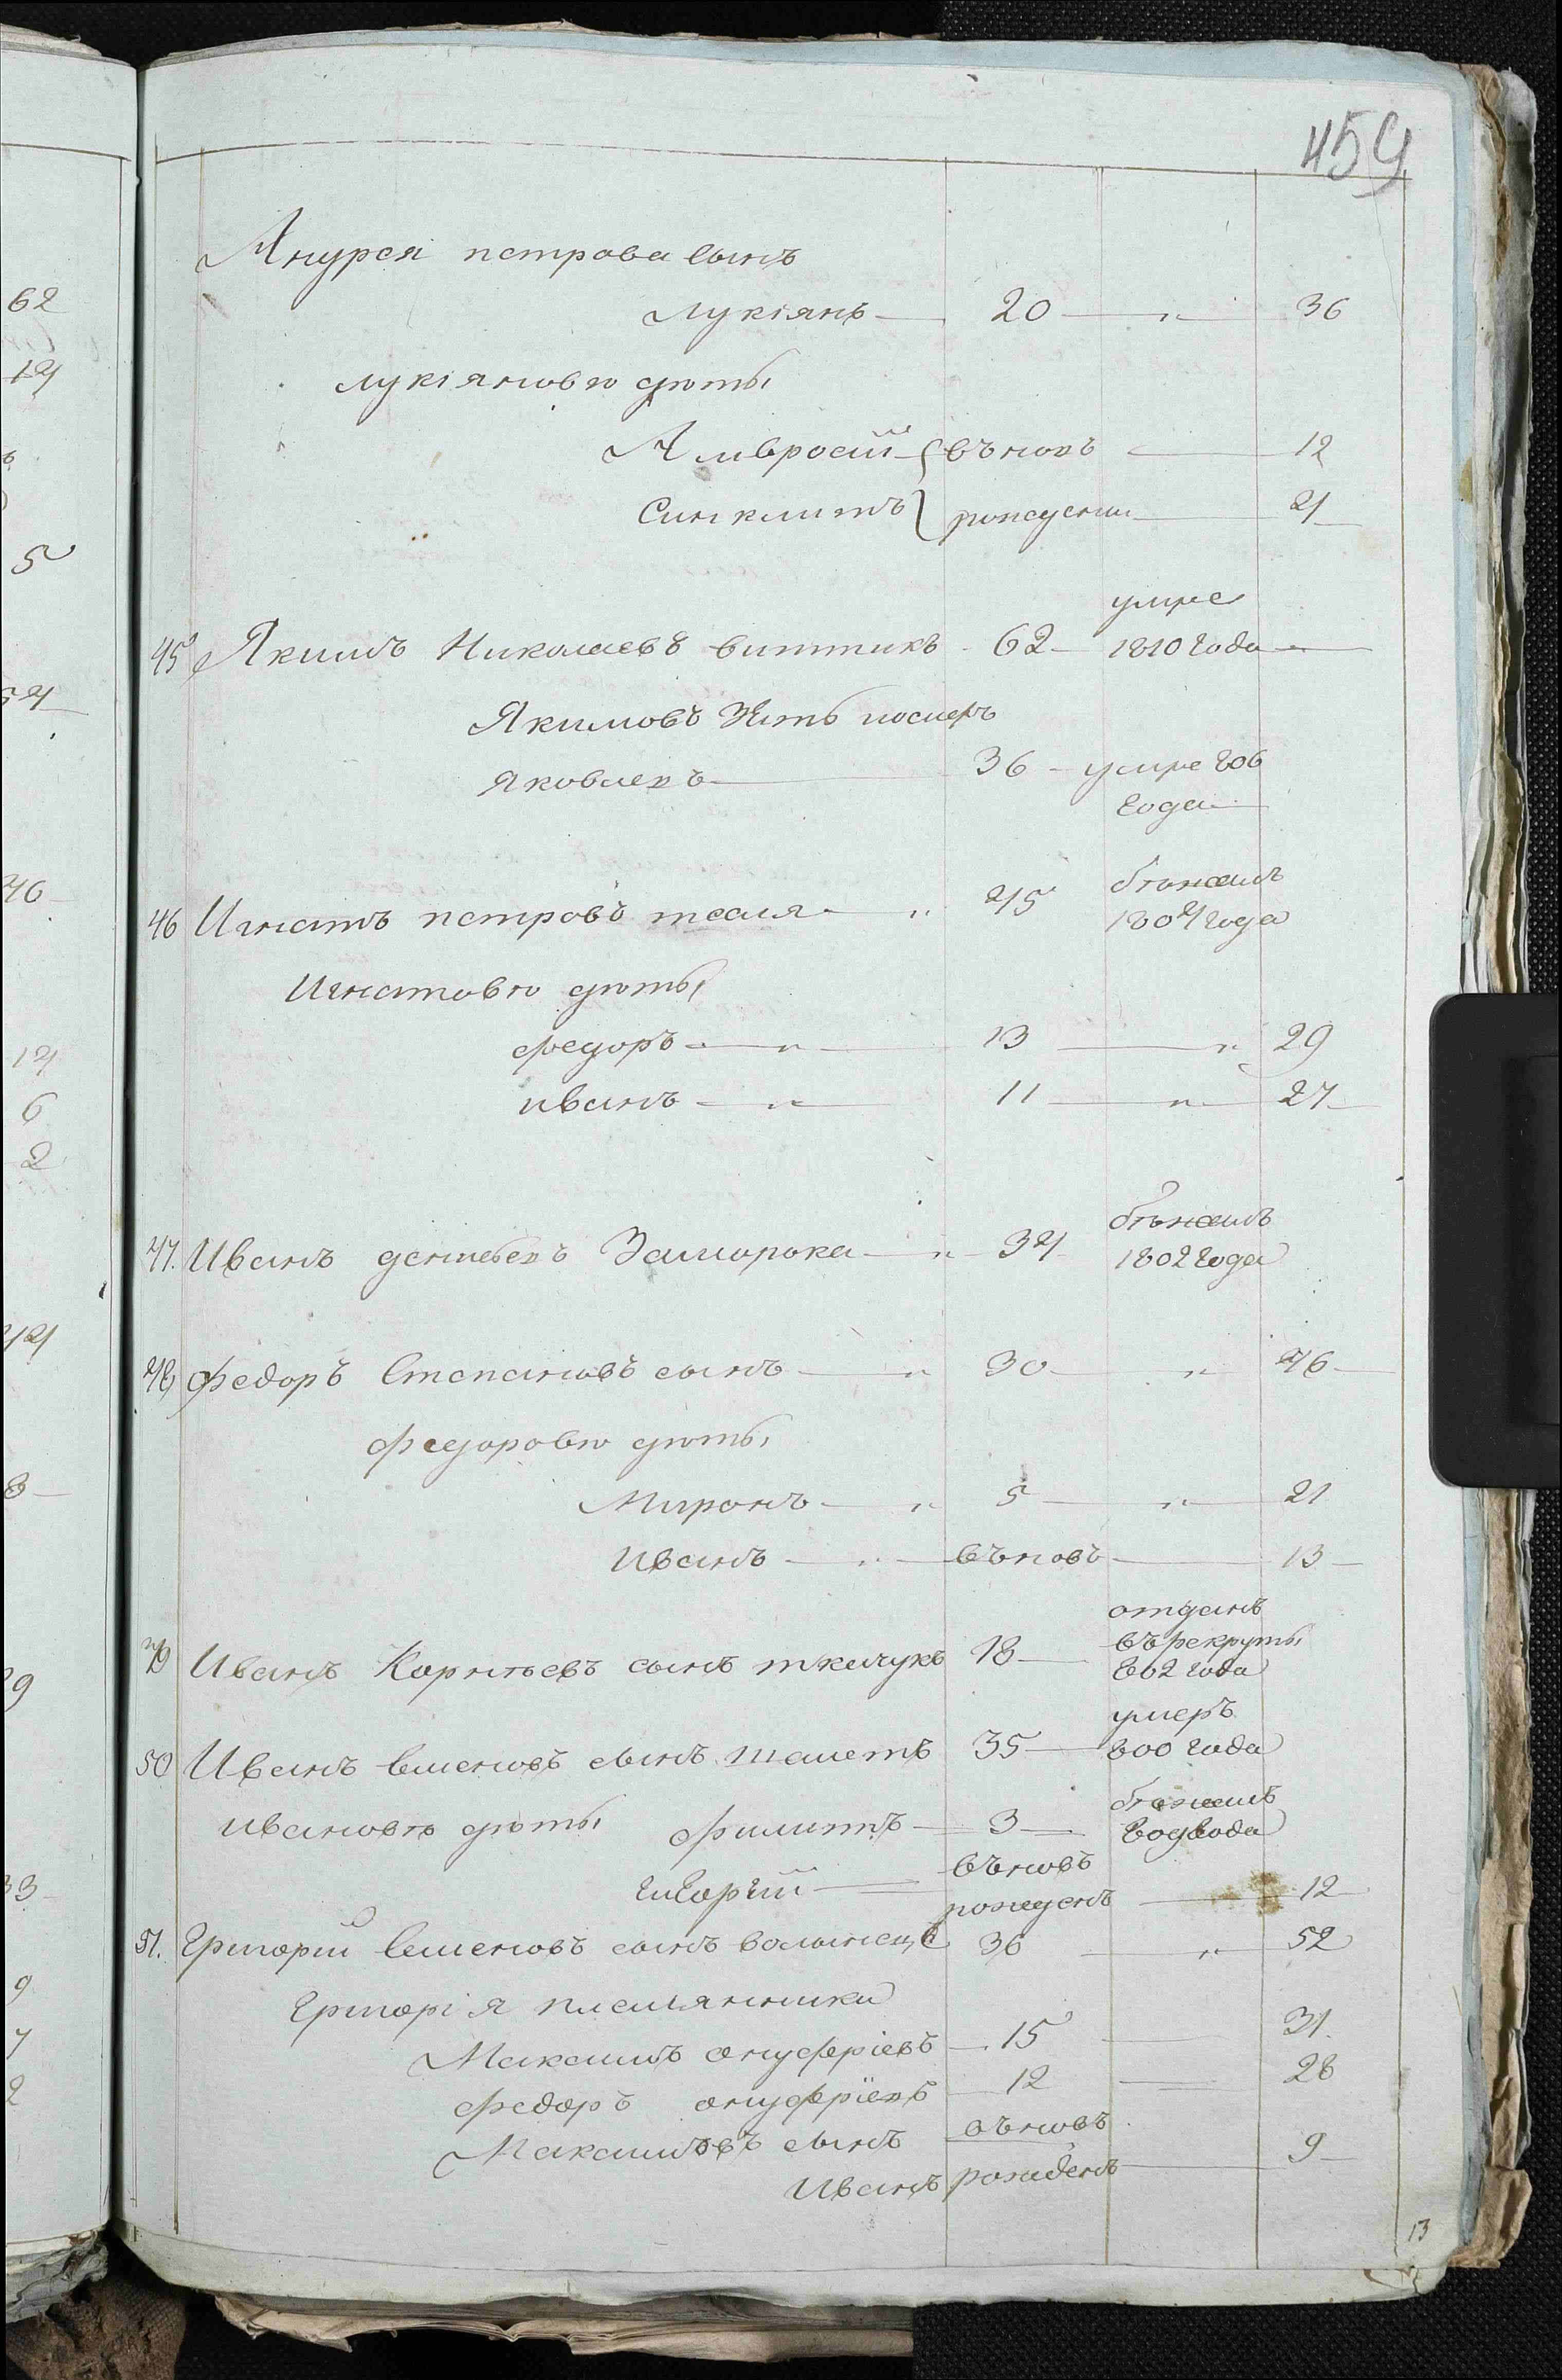 459
Анурея петрова сынъ
лукіянъ — 20 — „ — 36
лукіяновы дѣты
Амвросій въновь — 12
Синклитъ рождении — 4
умре
45 Якимъ Николаевъ витпикъ 62 — 1810 года —
Якимовъ Зять посмеръ
Яковлевъ — 36 — умре 806
года
бѣжалъ
46 Игнатъ петровъ — „ 45 1804 года
Игнатовы дѣты
федоръ — „ — 13 — „ 29
иванъ — „ — 11 — „ 27
бѣжалъ
47. Иванъ дементьевъ Заморока — „ — 34 1802 года
48 федоръ Степановъ сынъ — „ 30 — „ 46
федоровы дѣты
Миронъ — „ 5 — „ — 21
Иванъ — „ — въновь — 13
отданъ
въ рекруты
49 Иванъ Корнѣевъ сынъ ткачукъ 18 — 802 года
умеръ
50 Иванъ Семеновъ сынъ шелестъ 35 — 800 года
бѣжалъ
ивановы дѣты филиппъ — 3 — года
въновь
григорій — рожденъ — 12
51. Григорій Семеновъ сынъ волынецъ 36 — „ — 52
Григорія племянники
Максимъ онуфріевъ — 15 — 31
федоръ онуфріевъ — 12 — 28
Максимовъ сынъ въновь
Иванъ рожденъ — 9
13
62
14
5
54
46
14
6
2
44
8
29
33
9
7
2